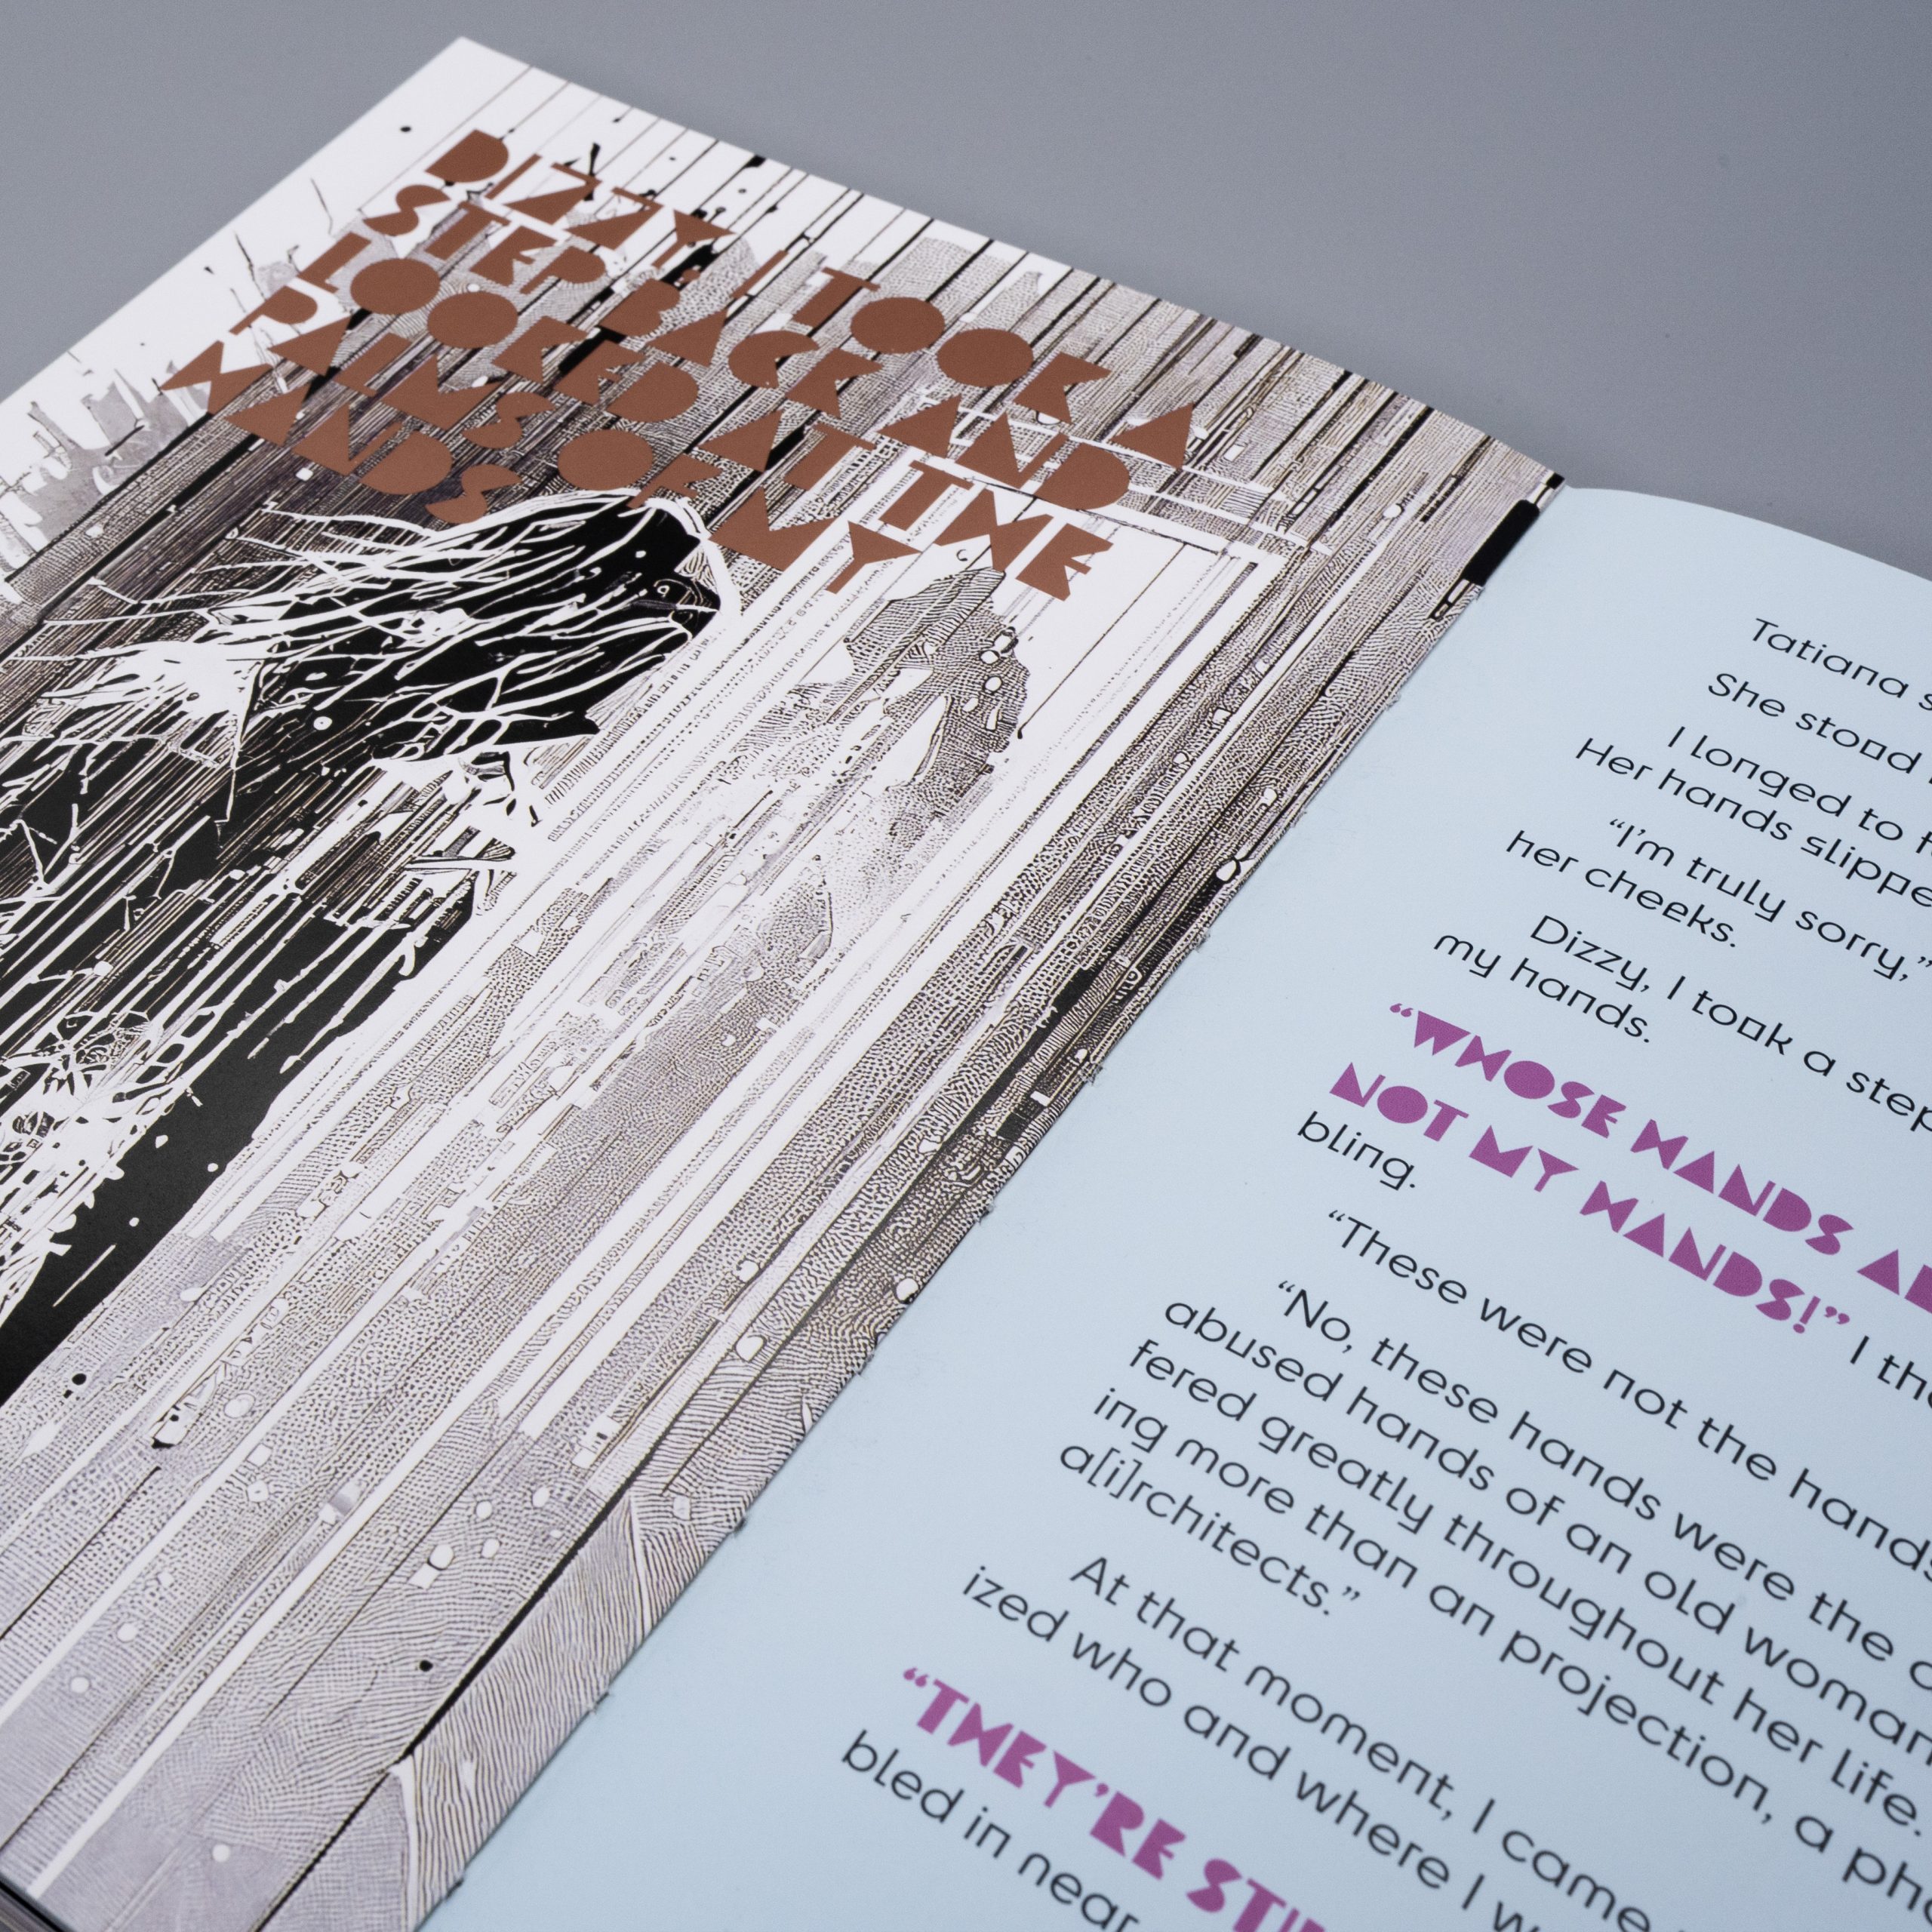 DIZZY, I TOOK A
STEP BACK AND
LOOKED AT THE
PALMS OF MY
HANDS
Tatiana
She stood
I longed to
Her hands
"I'm truly sorry,"
her cheeks.
Dizzy, I took a step
my hands.
"WHOSE HANDS
NOT MY HANDS!" I
bling.
"These were not the hands
"No, these hands were the
abused hands of an old woman
fered greatly throughout her life.
ing more than an projection, a
a[i]rchitects."
At that moment, I came
ized who and where I
"THEY'RE
bled in near